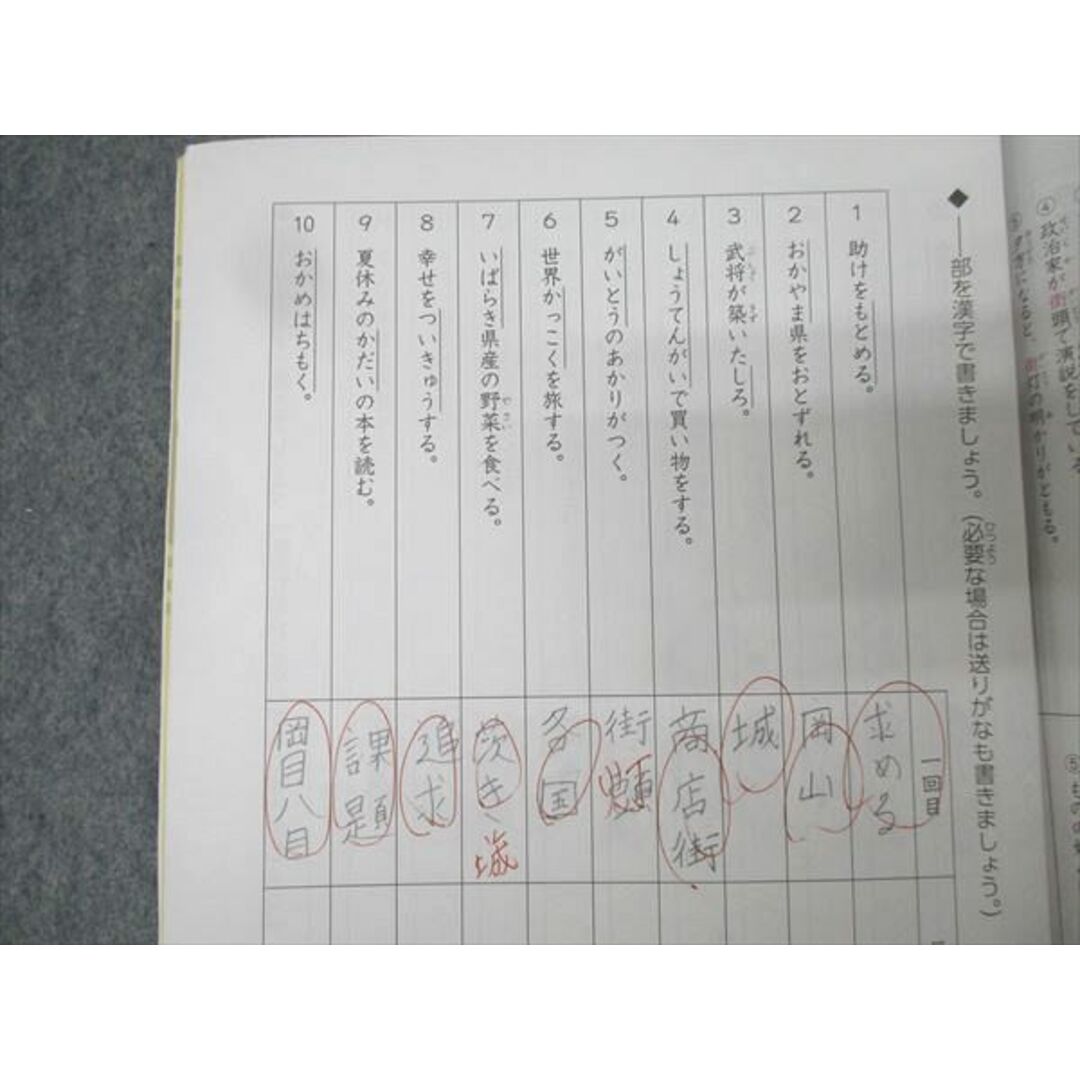 ④政治家が街頭で演説をしている
街灯の明かりがともる。
◆――部を漢字で書きましょう。（必要な場合は送りがなも書きましょう。）
ひつよう
一回目
1 助けをもとめる。
求める
2 おかやま県をおとずれる。
岡山
3 武将が築いたしろ。
ぶしょう きず
城
4 しょうてんがいで買い物をする。
商店街
5 がいとうのあかりがつく。
街
6 世界かっこくを旅する。
各国
7 いばらき県産の野菜を食べる。
やさい
茨き
城
8 幸せをついきゅうする。
追求
9 夏休みのかだいの本を読む。
課題
10 おかめはちもく。
岡目八目